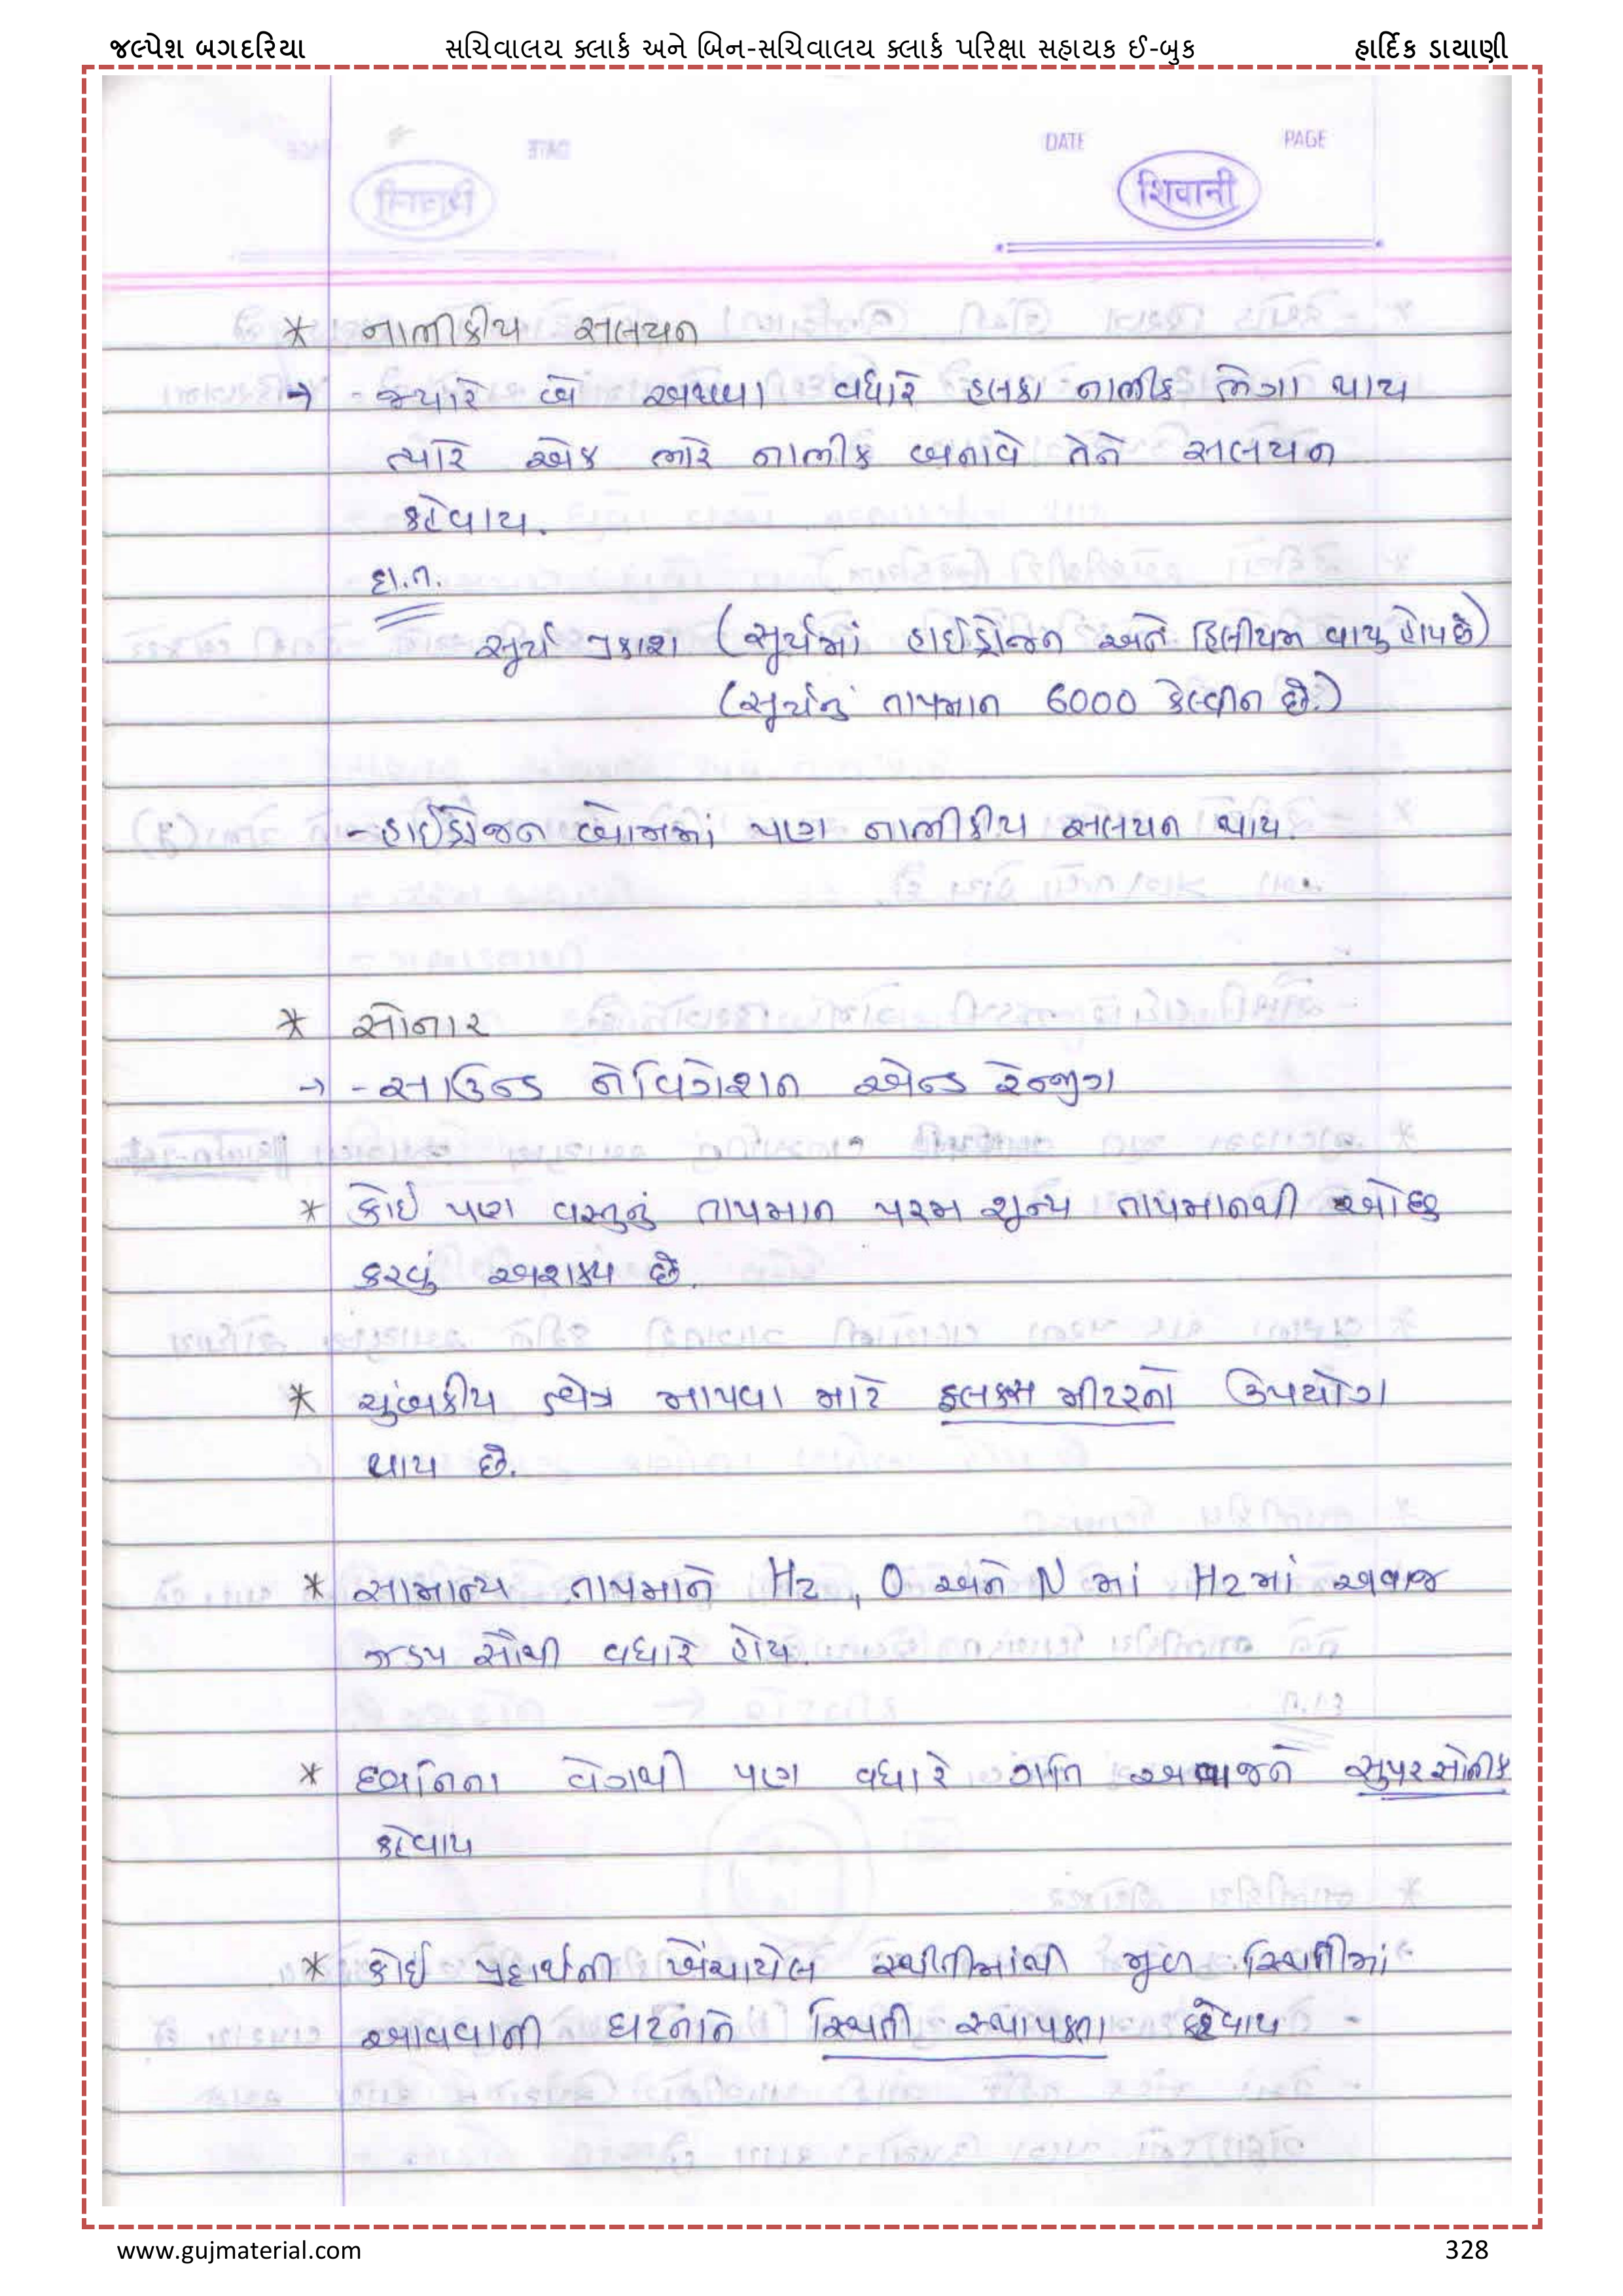 જલ્પેશ બગદરિયા સચિવાલય ક્લાર્ક અને બિન-સચિવાલય ક્લાર્ક પરિક્ષા સહાયક ઈ-બુક હાર્દિક ડાયાણી
DATE PAGE
शिवानी
* નાભીકીય સલયન
→ જ્યારે બે અથવા વધારે હલકા નાભીક ભેગા થાય
ત્યારે એક ભારે નાભીક બનાવે તેને સલયન
કહેવાય.
દા.ત.
સૂર્ય પ્રકાશ (સૂર્યમાં હાઈડ્રોજન અને હિલીયમ વાયુ હોય છે)
(સૂર્યનું તાપમાન 6000 કેલ્વીન છે.)
- હાઈડ્રોજન બોમમાં પણ નાભીકીય સલયન થાય.
* સોનાર
→ - સાઉન્ડ નેવિગેશન એન્ડ રેન્જીગ
* કોઈ પણ વસ્તુનું તાપમાન પરમ શૂન્ય તાપમાનથી ઓછુ
કરવું અશક્ય છે.
* ચુંબકીય ક્ષેત્ર માપવા માટે ફલક્સ મીટરનો ઉપયોગ
થાય છે.
* સામાન્ય તાપમાને H2, O અને N માં H2માં અવાજ
ઝડપ સૌથી વધારે હોય.
* ધ્વનિના વેગથી પણ વધારે ગતિ અવાજને સુપરસોનીક
કહેવાય
* કોઈ પદાર્થની ખેંચાયેલ સ્થીતીમાંથી મૂળ સ્થિતીમાં
આવવાની ઘટનાને સ્થિતી સ્થાપકતા કહેવાય
www.gujmaterial.com 328